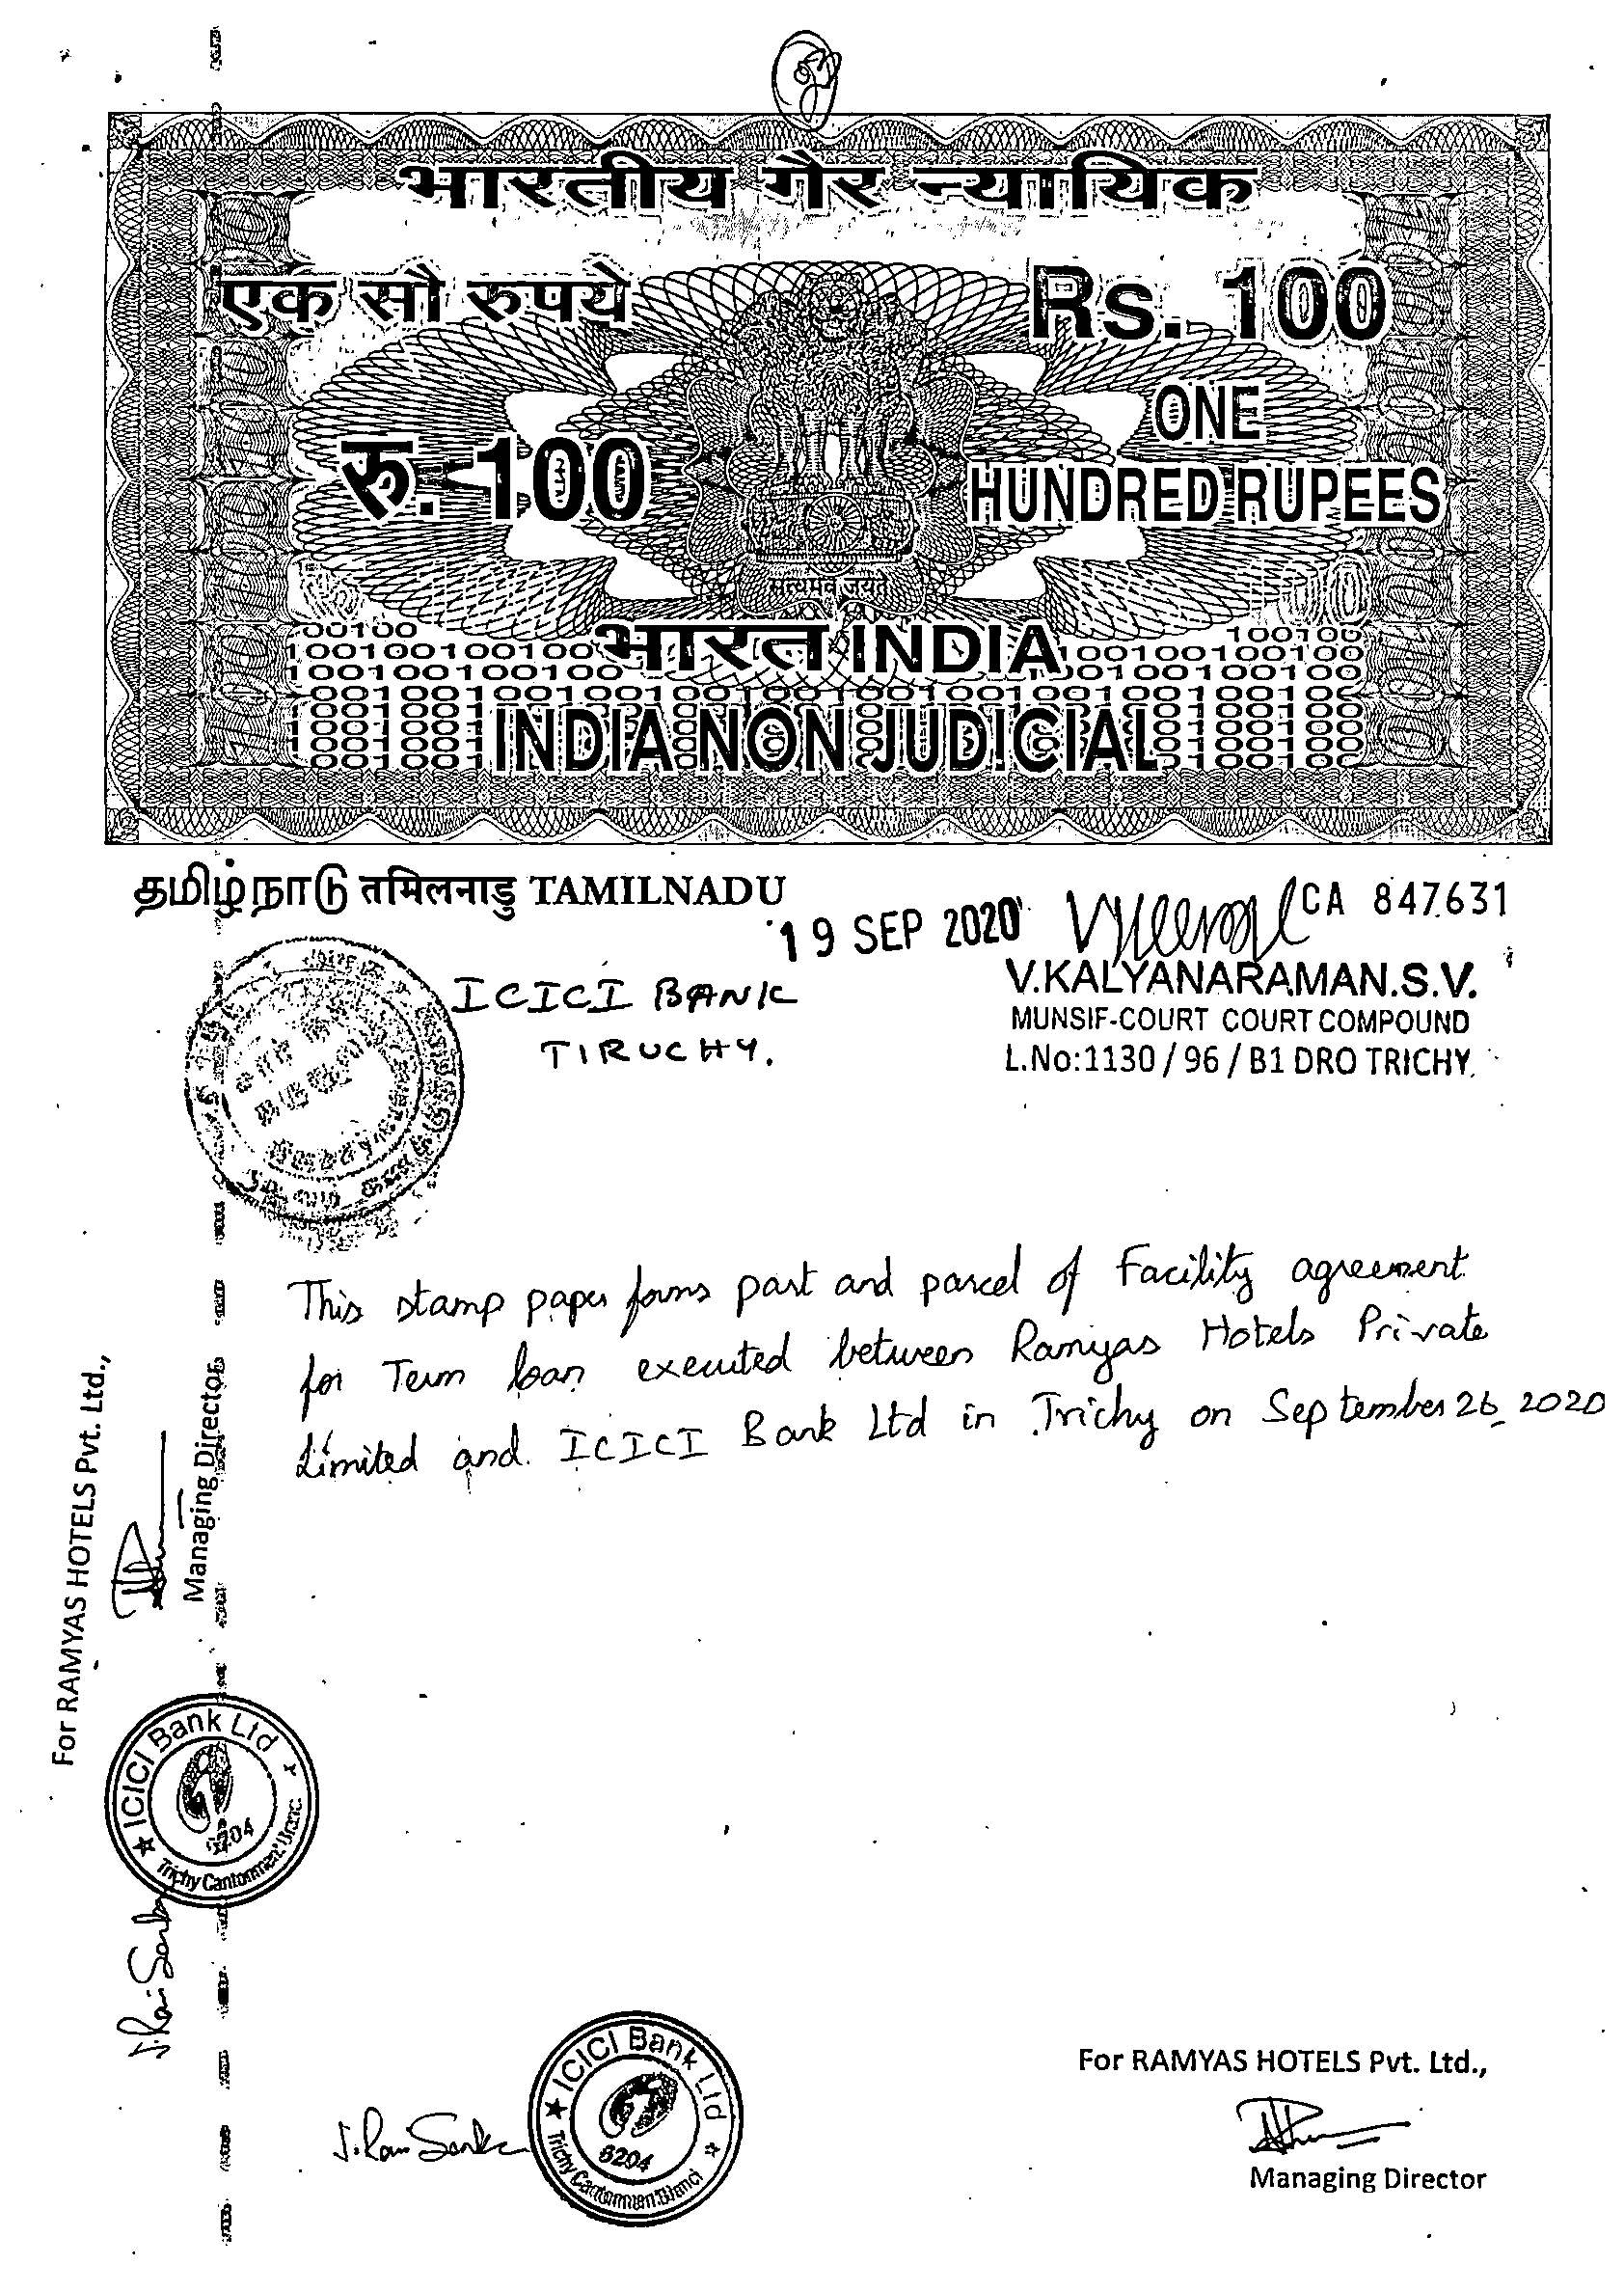 भारतीय गैर न्यायिक
एक सौ रुपये
Rs. 100
रु. 100
ONE
HUNDRED RUPEES
सत्यमेव जयते
भारत INDIA
INDIA NON JUDICIAL
தமிழ்நாடு तमिलनाडु TAMILNADU
19 SEP 2020
CA 847631
ICICI BANK
TIRUCHY.
V.KALYANARAMAN.S.V.
MUNSIF-COURT COURT COMPOUND
L.No:1130 / 96 / B1 DRO TRICHY.
This stamp paper forms part and parcel of Facility agreement
for Term loan executed between Ramyas Hotels Private
Limited and ICICI Bank Ltd in Trichy on September 26 2020
For RAMYAS HOTELS Pvt. Ltd.,
Managing Director
ICICI Bank Ltd
6204
Trichy Cantonment
ICICI Bank Ltd
6204
Trichy Cantonment
For RAMYAS HOTELS Pvt. Ltd.,
Managing Director